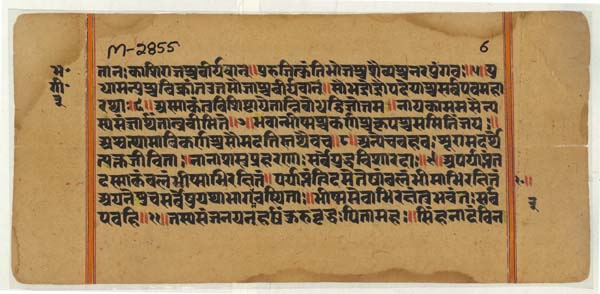 M-2855
६
भ॰
गी॰
तानः काशिराजश्च वीर्यवान्॥ पुरुजित्कुंतिभोजश्च शैब्यश्च नरपुंगवः॥५॥ यु
धामन्युश्च विक्रांत उत्तमौजाश्च वीर्यवान्॥ सौभद्रो द्रौपदेयाश्च सर्व एव महा
रथाः॥६॥ अस्माकं तु विशिष्टा ये तान्निबोध द्विजोत्तम॥ नायका मम सैन्य
स्य संज्ञार्थं तान्ब्रवीमि ते॥७॥ भवान्भीष्मश्च कर्णश्च कृपश्च समितिंजयः॥
अश्वत्थामा विकर्णश्च सौमदत्तिस्तथैव च॥८॥ अन्ये च बहवः शूरा मदर्थे
त्यक्तजीविताः॥ नानाशस्त्रप्रहरणाः सर्वे युद्धविशारदाः॥९॥ अपर्याप्तं त
दस्माकं बलं भीष्माभिरक्षितं॥ पर्याप्तं त्विदमेतेषां बलं भीमाभिरक्षितं
अयनेषु च सर्वेषु यथाभागमवस्थिताः॥ भीष्ममेवाभिरक्षंतु भवंतः सर्व
एव हि॥११॥ तस्य संजनयन्हर्षं कुरुवृद्धः पितामहः॥ सिंहनादं विन